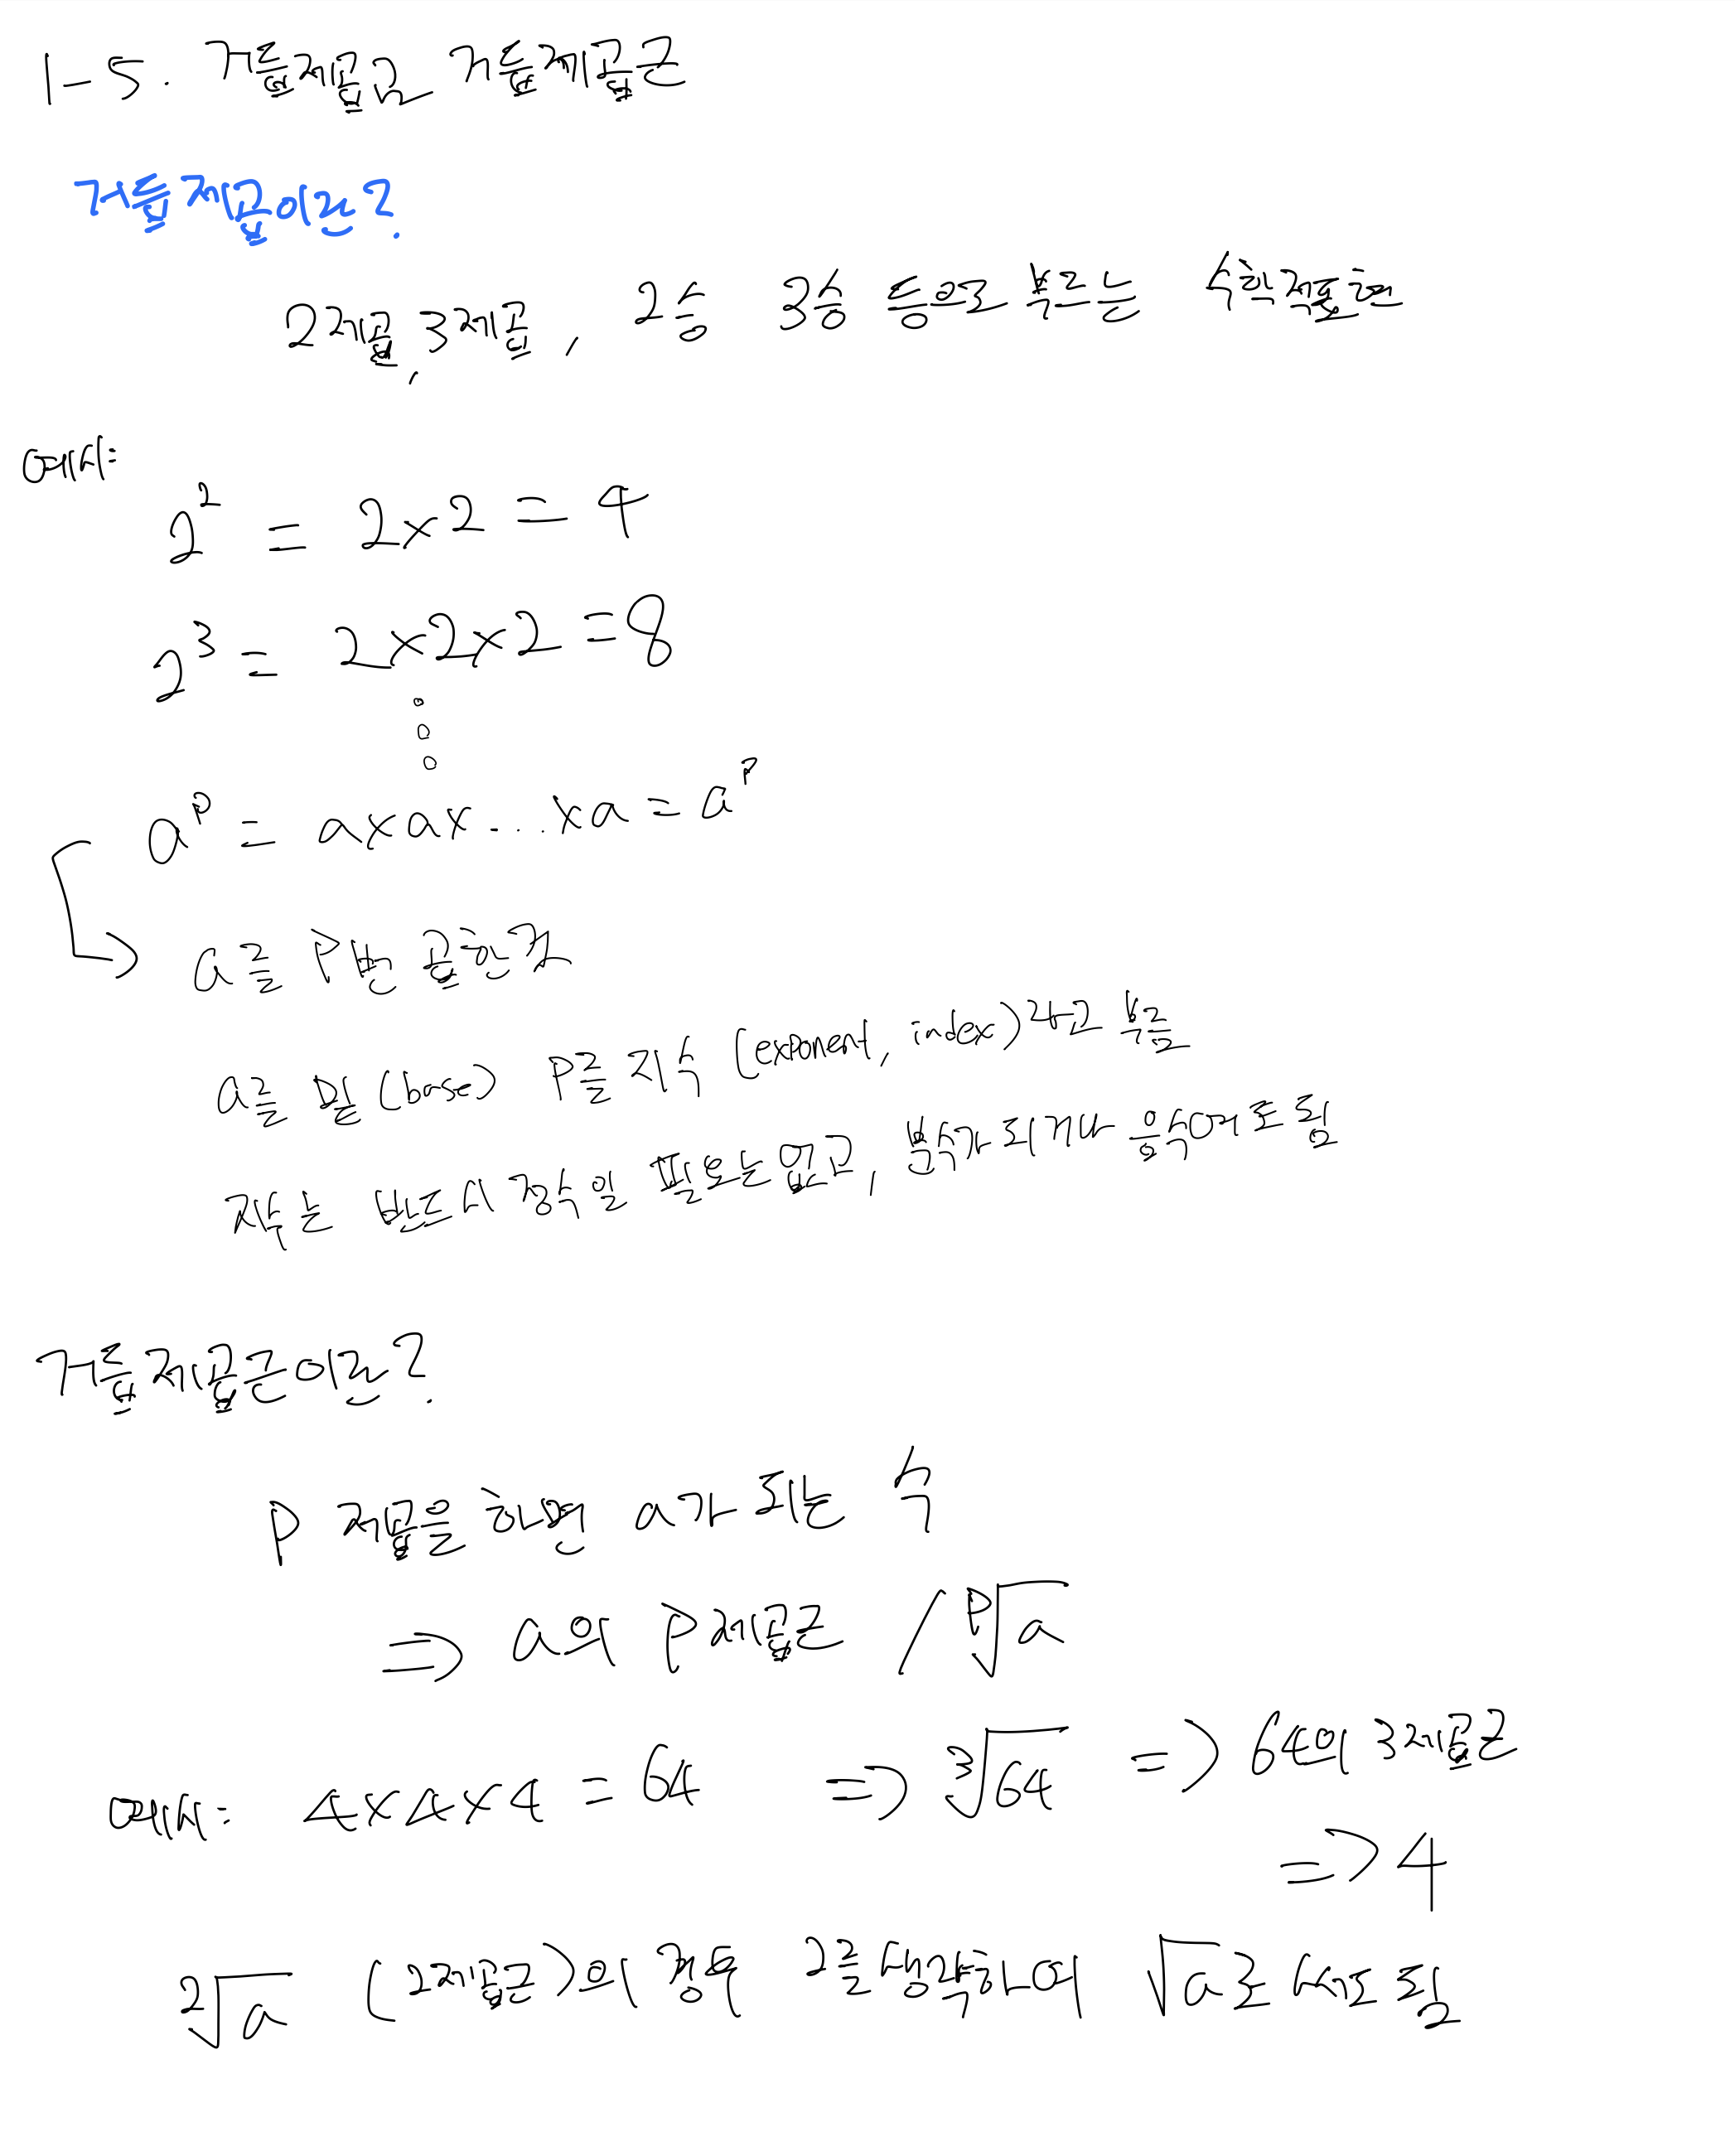 1-5. 거듭제곱과 거듭제곱근
거듭제곱이란?
2제곱, 3제곱, 2승 3승 등으로 부르는 수학적표현
예시:
2² = 2×2 = 4
2³ = 2×2×2 = 8
⋮
aᵖ = a×a×...×a = aᵖ
↳ a를 P번 곱한것
a를 밑(base) P를 지수 (exponent, index)라고 부름
지수는 반드시 정수일 필요는 없고, 분수가 되거나 음수여도 됨
거듭제곱근이란?
P 제곱을 하면 a가 되는 수
⇒ a의 P제곱근 / ᵖ√a
예시: 4×4×4 = 64 ⇒ ³√64 ⇒ 64의 3제곱근
⇒ 4
²√a (2제곱근)의 경우 2를 생략하여 √a로 써도 됨